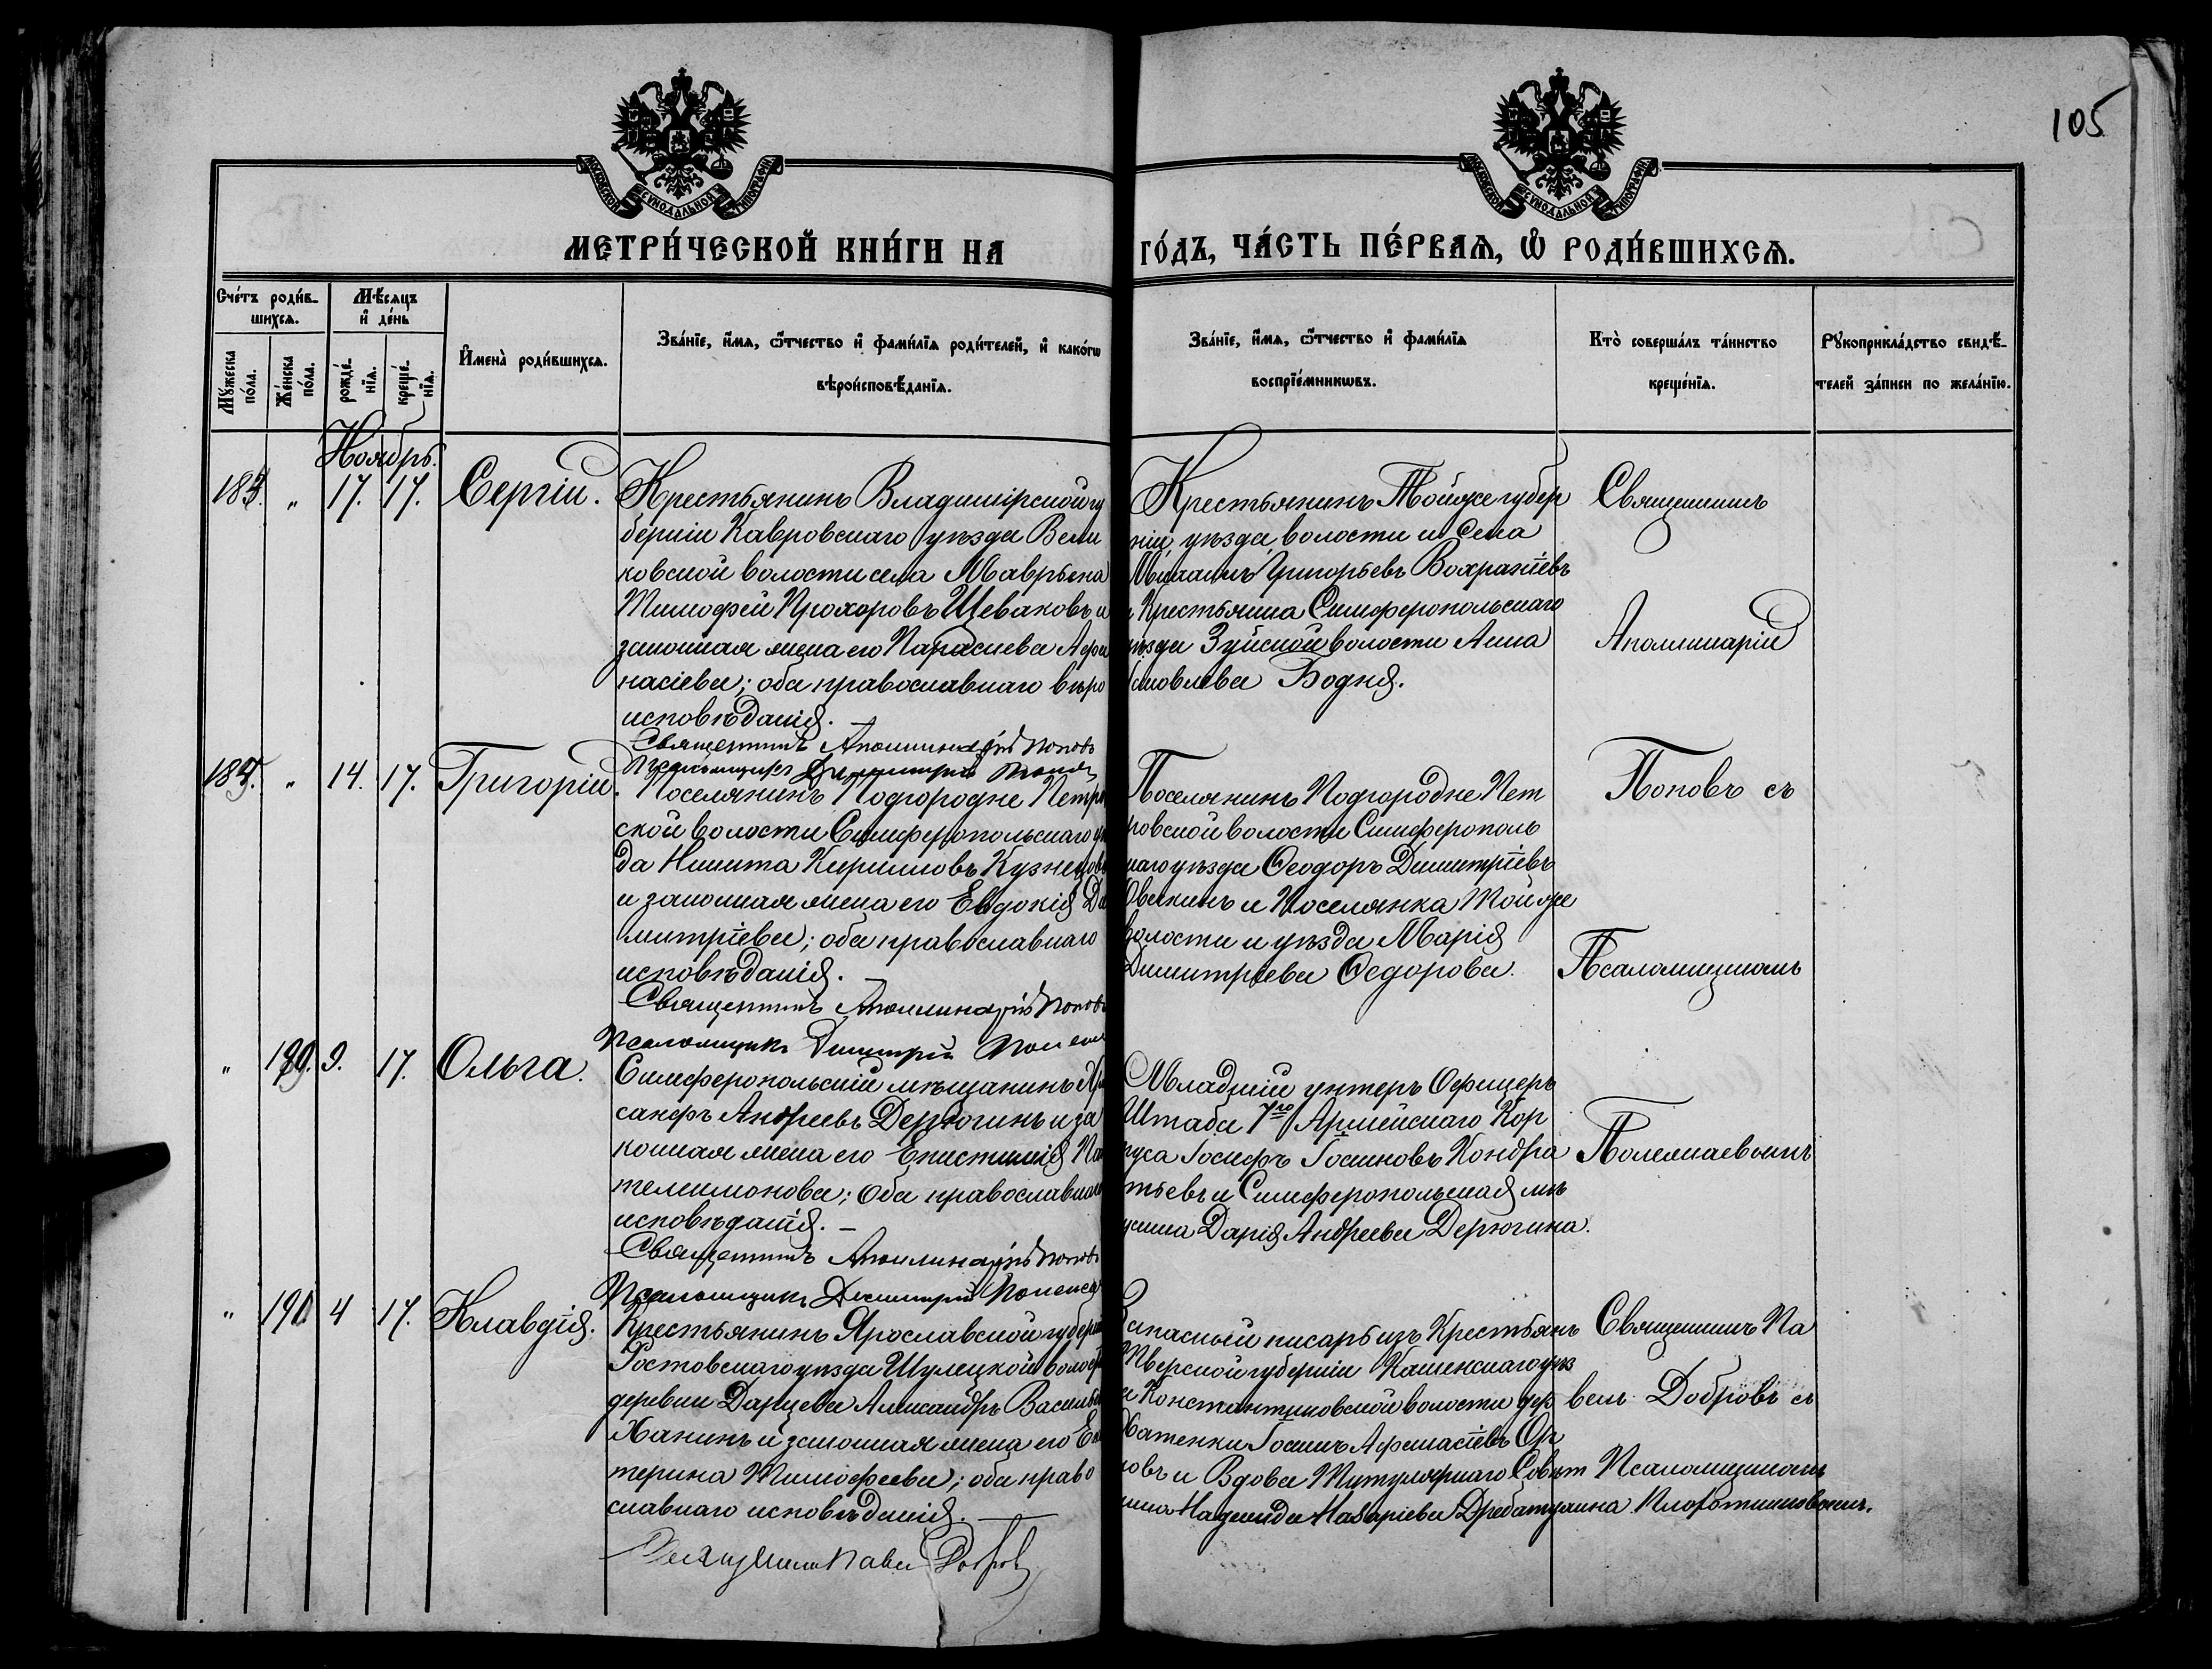 105
МОСКОВСКОЙ СѴНОДАЛЬНОЙ ТИПОГРАФІИ
МОСКОВСКОЙ СѴНОДАЛЬНОЙ ТИПОГРАФІИ
МЕТРИ́ЧЕСКОЙ КНИ́ГИ НА
ГО́ДЪ, ЧА́СТЬ ПЕ́РВАЯ, Ѽ РОДИ́ВШИХСЯ.
Сче́тъ роди́в-
шихся.
Мѣ́сяцъ
и҆ де́нь
Мꙋ́жеска по́ла.
Же́нска по́ла.
рожде́-
нїя.
креще́-
нїя.
И҆мена̀ роди́вшихся.
Зва́нїе, и҆́мя, ѻ҆́тчество и҆ фами́лїя роди́телей, и҆ како́гѡ
вѣроисповѣ́данїя.
Зва́нїе, и҆́мя, ѻ҆́тчество и҆ фами́лїя
воспрїе́мникѡвъ.
Кто̀ соверша́лъ та́инство
креще́нїя.
Рꙋкоприкла́дство свидѣ́-
телей за́писи по жела́нїю.
Ноябрь.
183. " 17. 17. Сергій.
Крестьянинъ Владимірской гу
берніи Кавровскаго уѣзда Вели
ковской волости села Маврына
Тимофей Прохоровъ Щеваковъ и
законная жена его Параскева Афа
насіева; оба православнаго вѣро
исповѣданія. —
Священникъ Аполлинарій Поповъ
Псаломщикъ Димитрій
Крестьянинъ Тойже губер
ніи, уѣзда, волости и Села
Михаилъ Григорьевъ
Крестьянка Симферопольскаго
уѣзда Зуйской волости Анна
Яковлева Бодня.
Священникъ
Аполлинарій
Поповъ съ
Псаломщикомъ
184. " 14. 17. Григорій.
Поселянинъ Подгородне Петро
ской волости Симферопольскаго уѣ
да Никита Кирилловъ Кузнецовъ
и законная жена его Евдокія Ди
митріева; оба православнаго
исповѣданія. —
Священникъ Аполлинарій Поповъ
Псаломщикъ Димитрій
Поселянинъ Подгородне Пет
ровской волости Симферополь
скаго уѣзда Ѳеодоръ Димитріевъ
Овсикинъ и Поселянка Той же
волости и уѣзда Марія
Димитріева Ѳедорова.
" 189. 9. 17. Ольга.
Симферопольскій мѣщанинъ Хри
санфъ Андреевъ Дерюгинъ и за
конная жена его Епистимія Па
телимонова; Оба православнаго
исповѣданія. —
Священникъ Аполлинарій Поповъ
Псаломщикъ Димитрій
Младшій унтеръ Офицеръ
Штаба 7го Армейскаго Кор
пуса Іосифъ Іосифовъ Кондра
тьевъ и Симферопольская мѣ
щанка Дарія Андреева Дерюгина.
" 190 4 17. Клавдія.
Крестьянинъ Ярославской губерн
Ростовскаго уѣзда Шулецкой волост
деревни Дарцева Александръ Василь
Ханинъ и законная жена его Ека
терина Тимофеева; оба право
славнаго исповѣданія. —
Священникъ Павелъ Добровъ
Запасный писарь изъ Крестьянъ
Тверской губерніи Кашинскаго уѣз
Константиновской волости дер
Іосифъ Афанасіевъ Ор
ловъ и Вдова Титулярнаго Совѣт
ника Надежда Назаріева
Священникъ Па
велъ Добровъ съ
Псаломщикомъ